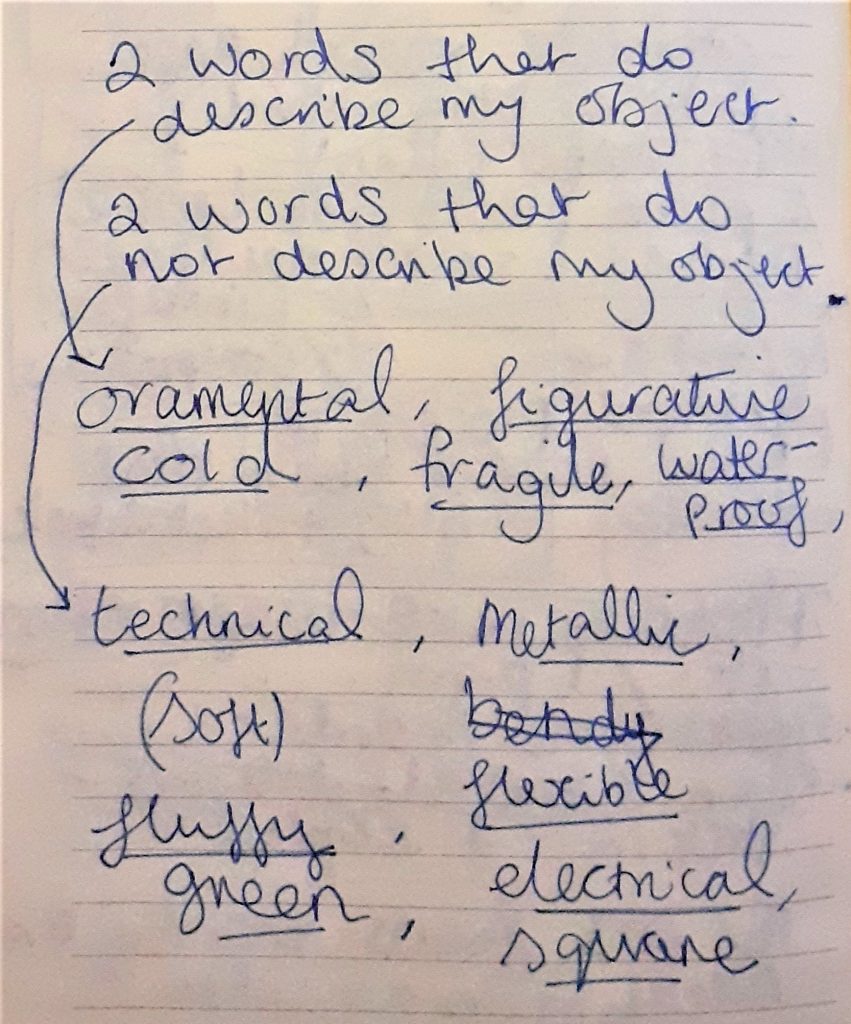 2 words that do
describe my object.
2 words that do
not describe my object.
oramental, figurative
cold, fragile, water-
proof,
technical, Metallic,
(soft) bendy
flexible
fluffy,
green, electrical,
square